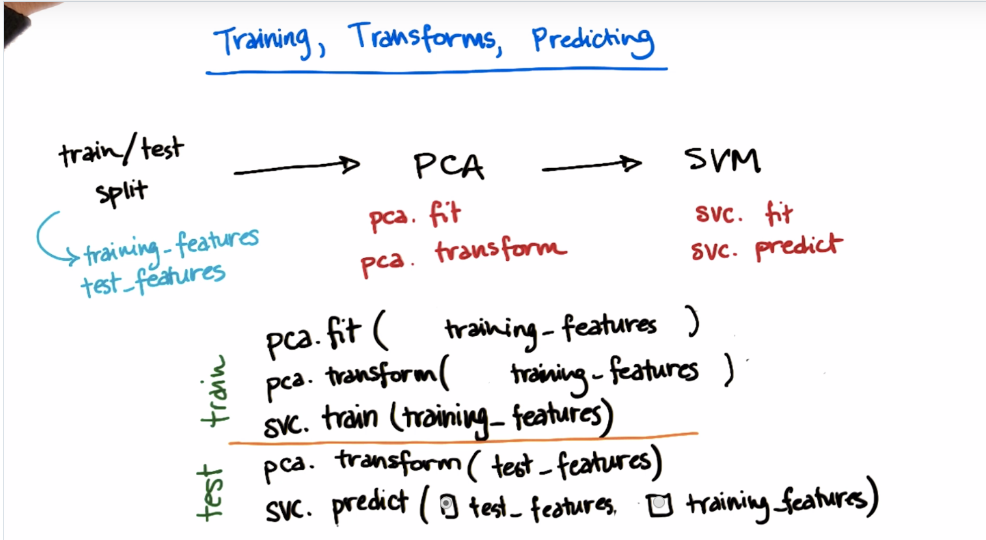 Training, Transforms, Predicting
train/test
split
PCA
SVM
training_features
test_features
pca. fit
pca. transform
svc. fit
svc. predict
train
pca.fit ( training_features )
pca. transform( training_features )
svc. train (training_features)
test
pca. transform( test_features)
svc. predict ( test_features, training_features)